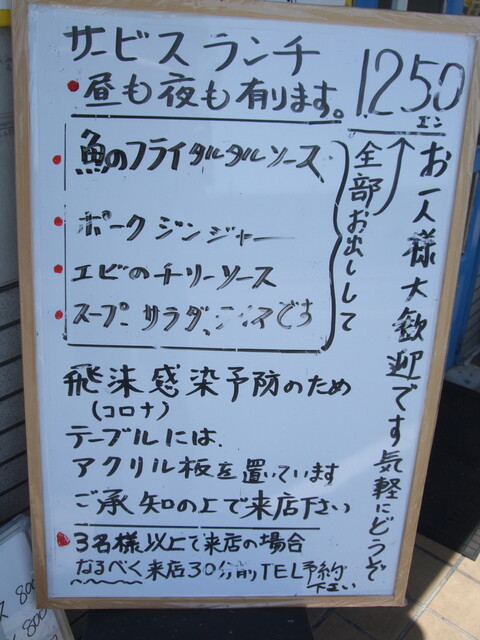 サービスランチ
昼も夜も有ります。
1250
エン
魚のフライタルタルソース
ポークジンジャー
エビのチリーソース
スープ サラダ、ライスです
全部お出しして
お一人様大歓迎です気軽にどうぞ
飛沫感染予防のため
(コロナ)
テーブルには、
アクリル板を置いています
ご承知の上で来店下さい
3名様以上で来店の場合
なるべく来店30分前TEL予約
下さい
800
800